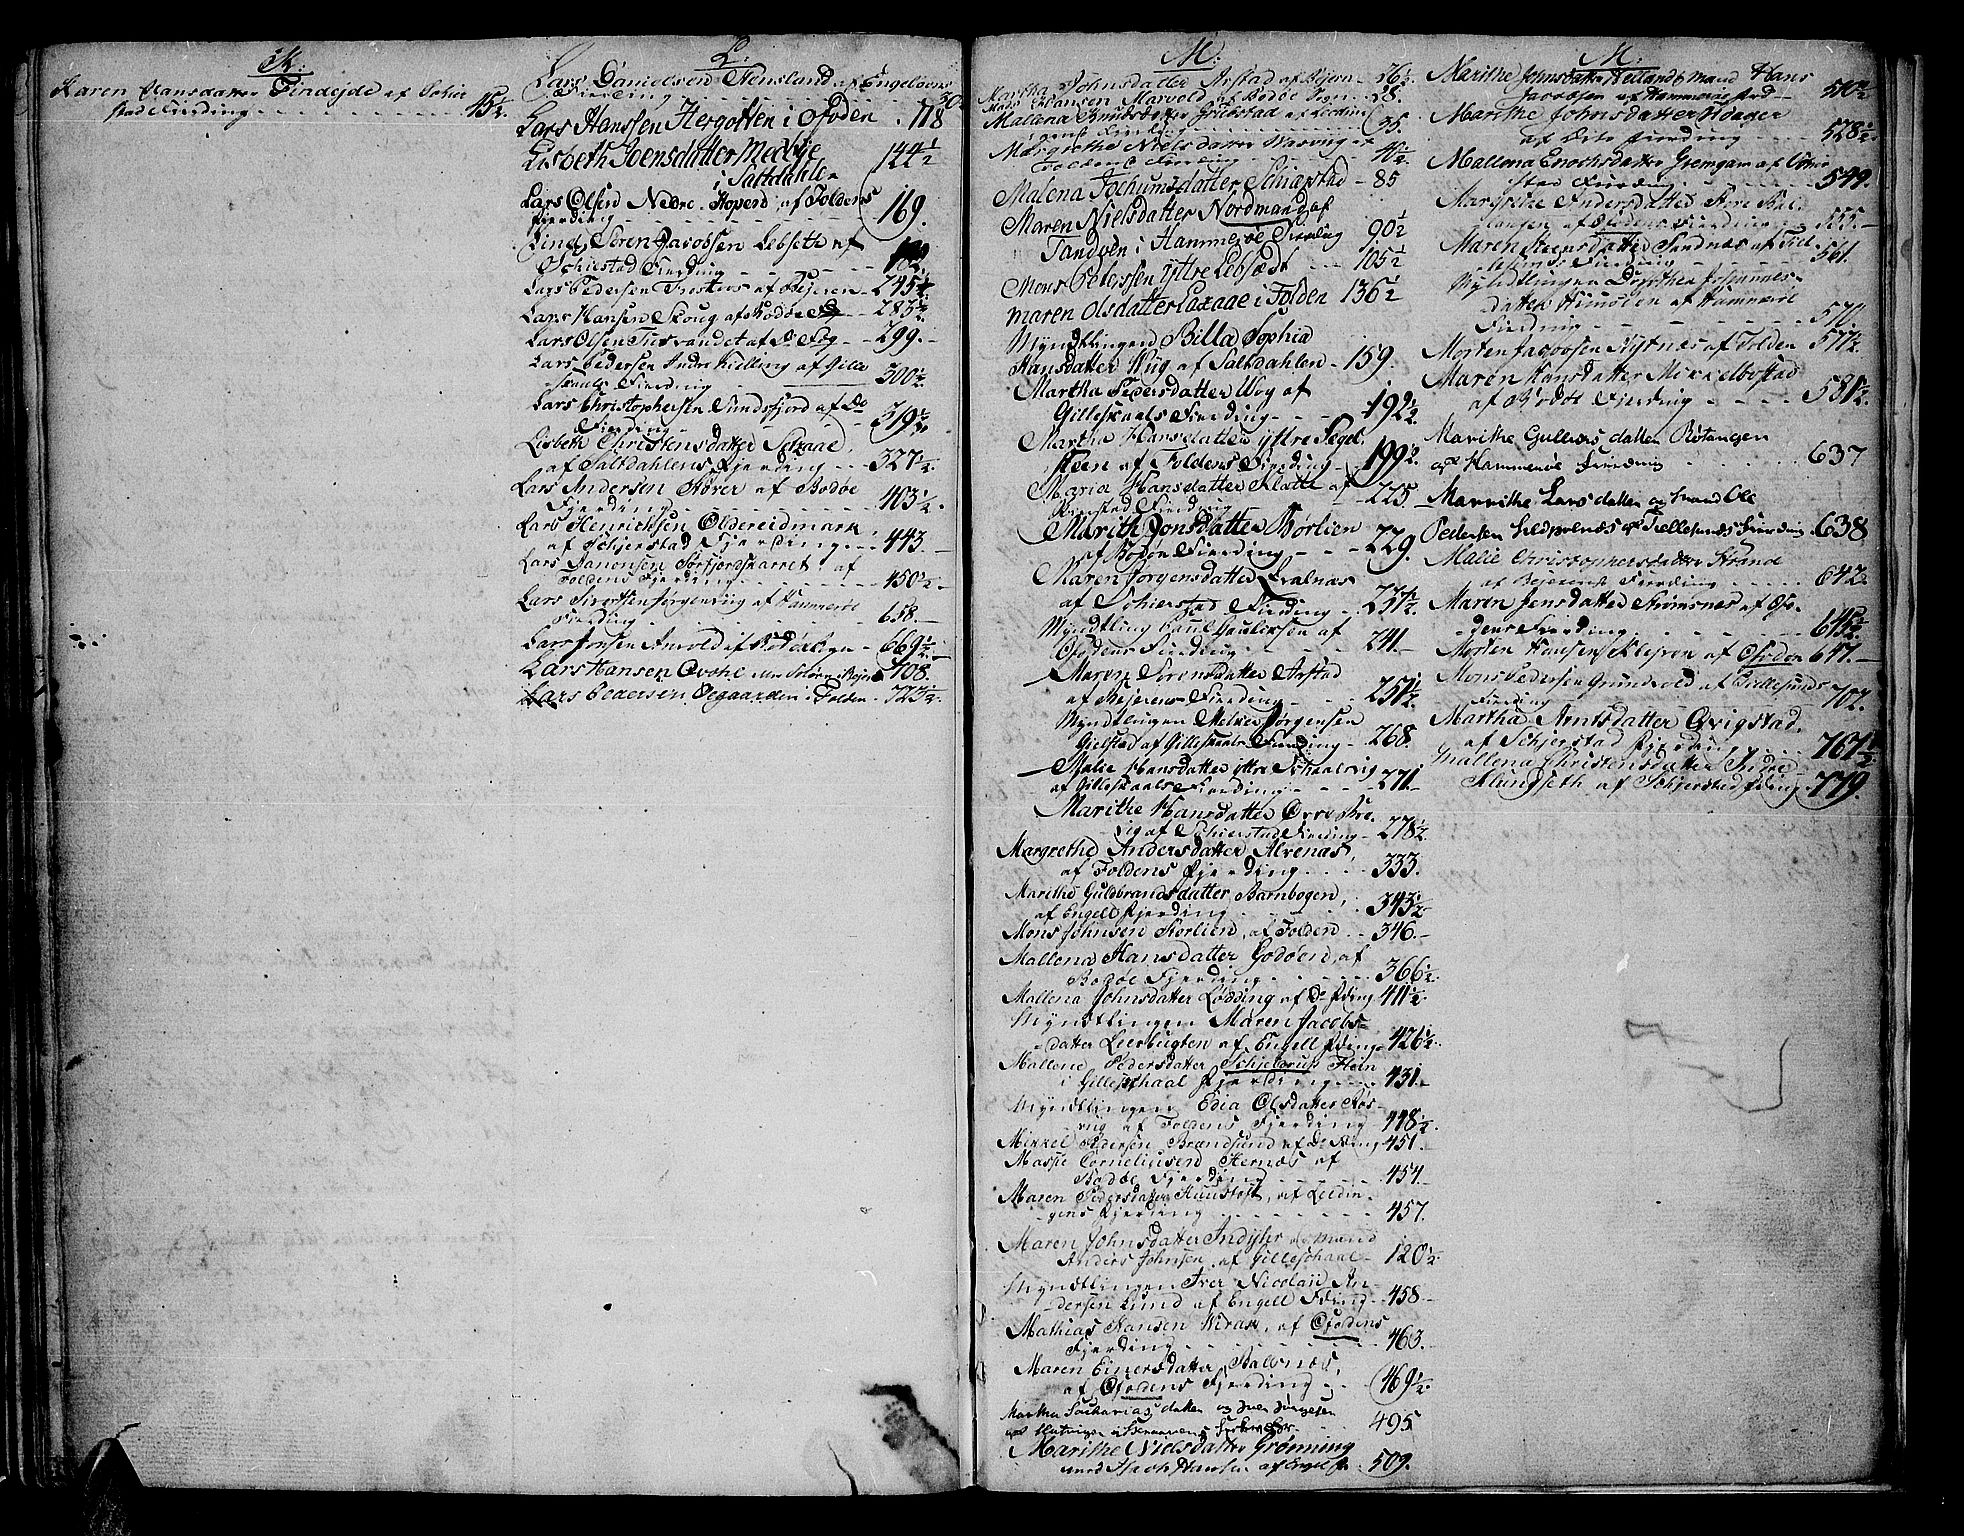 K:
Karen Hansdatter Tindejde af Schier
stad Fierding 15½.
L:
Lars Danielsen Fensland af Engelvens
Fierding 30
Lars Hanssen Hergotten i Ofoden 118
Lisbeth Joensdatter Medbye
i Saltdahlen 144½
Lars Olsen Nedre af Foldens
fjerding 169.
Lind, Sören Jacobsen Lebseth af
Schiestad Fierding
Lars Pedersen af Bejeren 245½
Lars Hansen Skoug af Bodøe 283½
Lars Olsen af Do Fog 299.
Lars Pedersen Indre Kielling af Gille
skaals Fierding 300½.
Lars Christophersen Sundsfjord af Do
Fierding 319½
Lisbeth Christensdatter
af Saltdahlens Fjerding 327½.
Lars Andersen Kører af Bodøe
Fjerding 403½.
Lars Henricksen Oldereidmark
af Schjerstad Fjerding 443.
Lars Danonsen Sørfjordskarret af
Foldens Fjerding 450½
Lars Sivertsen Jørgenviig af Hammerøe
Fierding 658.
Lars Jonsen af Bodøe 669½
Lars Hansen Qvohl 708.
Lars Pedersen Øegaarden i Folden 723½.
M:
Martha Johnsdatter Arstad af Bejern 16½
Mads Hansen Marvold af Bodøe Fogn 28.
Mallena Knudsdatter
gens Fierding 35.
Margrethe Nielsdatter
Foldens Fierding 46½
Malena Jochumsdatter Schierstad 85
Maren Nielsdatter Nordmand af
Tandøen i Hammerøe Fierding 90½
Mons Pedersen Yttre Lebsædt 105½
maren Olsdatter Laxaae i Folden 136½
Myndtlingen Billa Sophia
Hansdatter Hug af Saltdahlen 159.
Martha Pedersdatter Wog af
Gilleskaals Fierding 192½
Marthe Hansdatter Yttre Segel
steen af Foldens Fierding 199½.
Maria Hansdatter Klætte af
Fierding 225.
Marith Jonsdatter Børlien
af Bodøe Fierding 229.
Maren Jørgensdatter Evalnæs
af Schierstad Fierding 237½.
Myndtling Paul Paulersen af
Ofodens Fierding 241.
Maren Sørensdatter Arstad
af Bejerens Fierding 257½.
Myndtlingen Melker Jørgensen
Gielstad af Gilleskaals Fierding 268.
Malie Hansdatter Yttre Schaalsvig
af Gilleskaals Fierding 271.
Marithe Hansdatter
vig af Schierstad Fierding 278½
Margrethe Andersdatter Alvenæs,
af Foldens Fjerding 333.
Marithe Guldbrandsdatter Barnbogen,
af Engell Fjerding 343½
Mons Johnsen Storlien, af Folden 346.
Mallena Hansdatter Godøen, af
Bodøe Fjerding 366½
Mallena Johnsdatter Lødding af Do Fding 411½.
Myndtlingen Maren Jacobs-
datter Leerbugten af Engell Fding 426½.
Mallene Pedersdatter Schjelderup Flein
i Gillesthaal Fjerding 431.
Myndtlingen Edia Olsdatter Røs-
vig af Foldens Fjerding 448½
Mikkel Pedersen Brændsund af Do Fding 451.
Masse Corneliusen Hernæs af
Bodøe Fjerding 454.
Maren Pedersdatter Kunstoft, af Leedin-
gens Fjerding 457.
Maren Johnsdatter Indyhr og mand
Anders Johnsen, af Gilleschaal 120½.
Myndtlingen Iver Nicolaii An-
dersen Lund af Engell Fding 458.
Mathias Hansen Virak, af Ofodens
Fjerding 463.
Maren Einersdatter Balsnæs,
af Ofodens Fjerding 469½.
Martha Sachariasdatter og Iver Jørgesen
495
Marithe Nielsdatter Grønning
med Hansen af Engel 509.
M:
Marithe Johnsdatter Hellands mand Hans
Jacobsen af Hammerøe fierd 510½
Marithe Johnsdatter
af Dito Fierding 528½.
Mallena Enochsdatter Gremgam af Schier
stad Fierding 549.
Margrithe Andersdatter
af Fierding 555.
Maren Steensdatter Sandnæs af Fiel
Fierding 561.
Myndtlingen Dorothea Johannes
datter af Hammerøe
Fierding 570.
Morten Jacobsen Nystnæs af Folden 577½
Maren Hansdatter Mikkelbostad
af Bodøe Fierding 581½.
Marithe Gullovsdatter Røtangen
af Hammerøe Fierding 637
Marrithe Larsdatter og mand Ole
Pedersen af Fiellesunds Fierding 638
Malie Christophersdatter Strand
af Bejerens Fierding 642.
Maren Jensdatter Strømsnes af Ofo-
dens Fierding 645½
Morten Hansen af Ofoden 647.
Mons Pedersen Grundvold af
Fierding 702.
Martha Arntsdatter Qvigstad.
af Schjerstad Fjerding 767½
Mallena Christensdatter Indre
Klungseth af Schjerstad Fding 779.